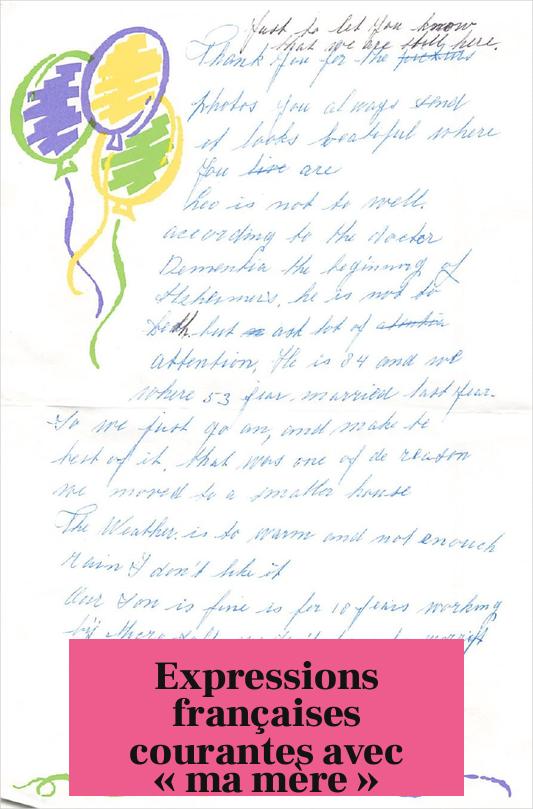 Just to let you know
that we are still here.
Thank you for the
photos you always send
it looks beatiful where
you live are
Leo is not to well.
according to the doctor
Dementia the beginning of
Alzheimers, he is not to
but ask lot of
attention, He is 84 and we
where 53 year married last year.
So we just go on, and make te
best of it, that was one of de reason
we moved to a smaller house
The Weather is to warm and not enough
rain I don't like it
Our Son is fine is for 10 years working
Expressions
françaises
courantes avec
« ma mère »